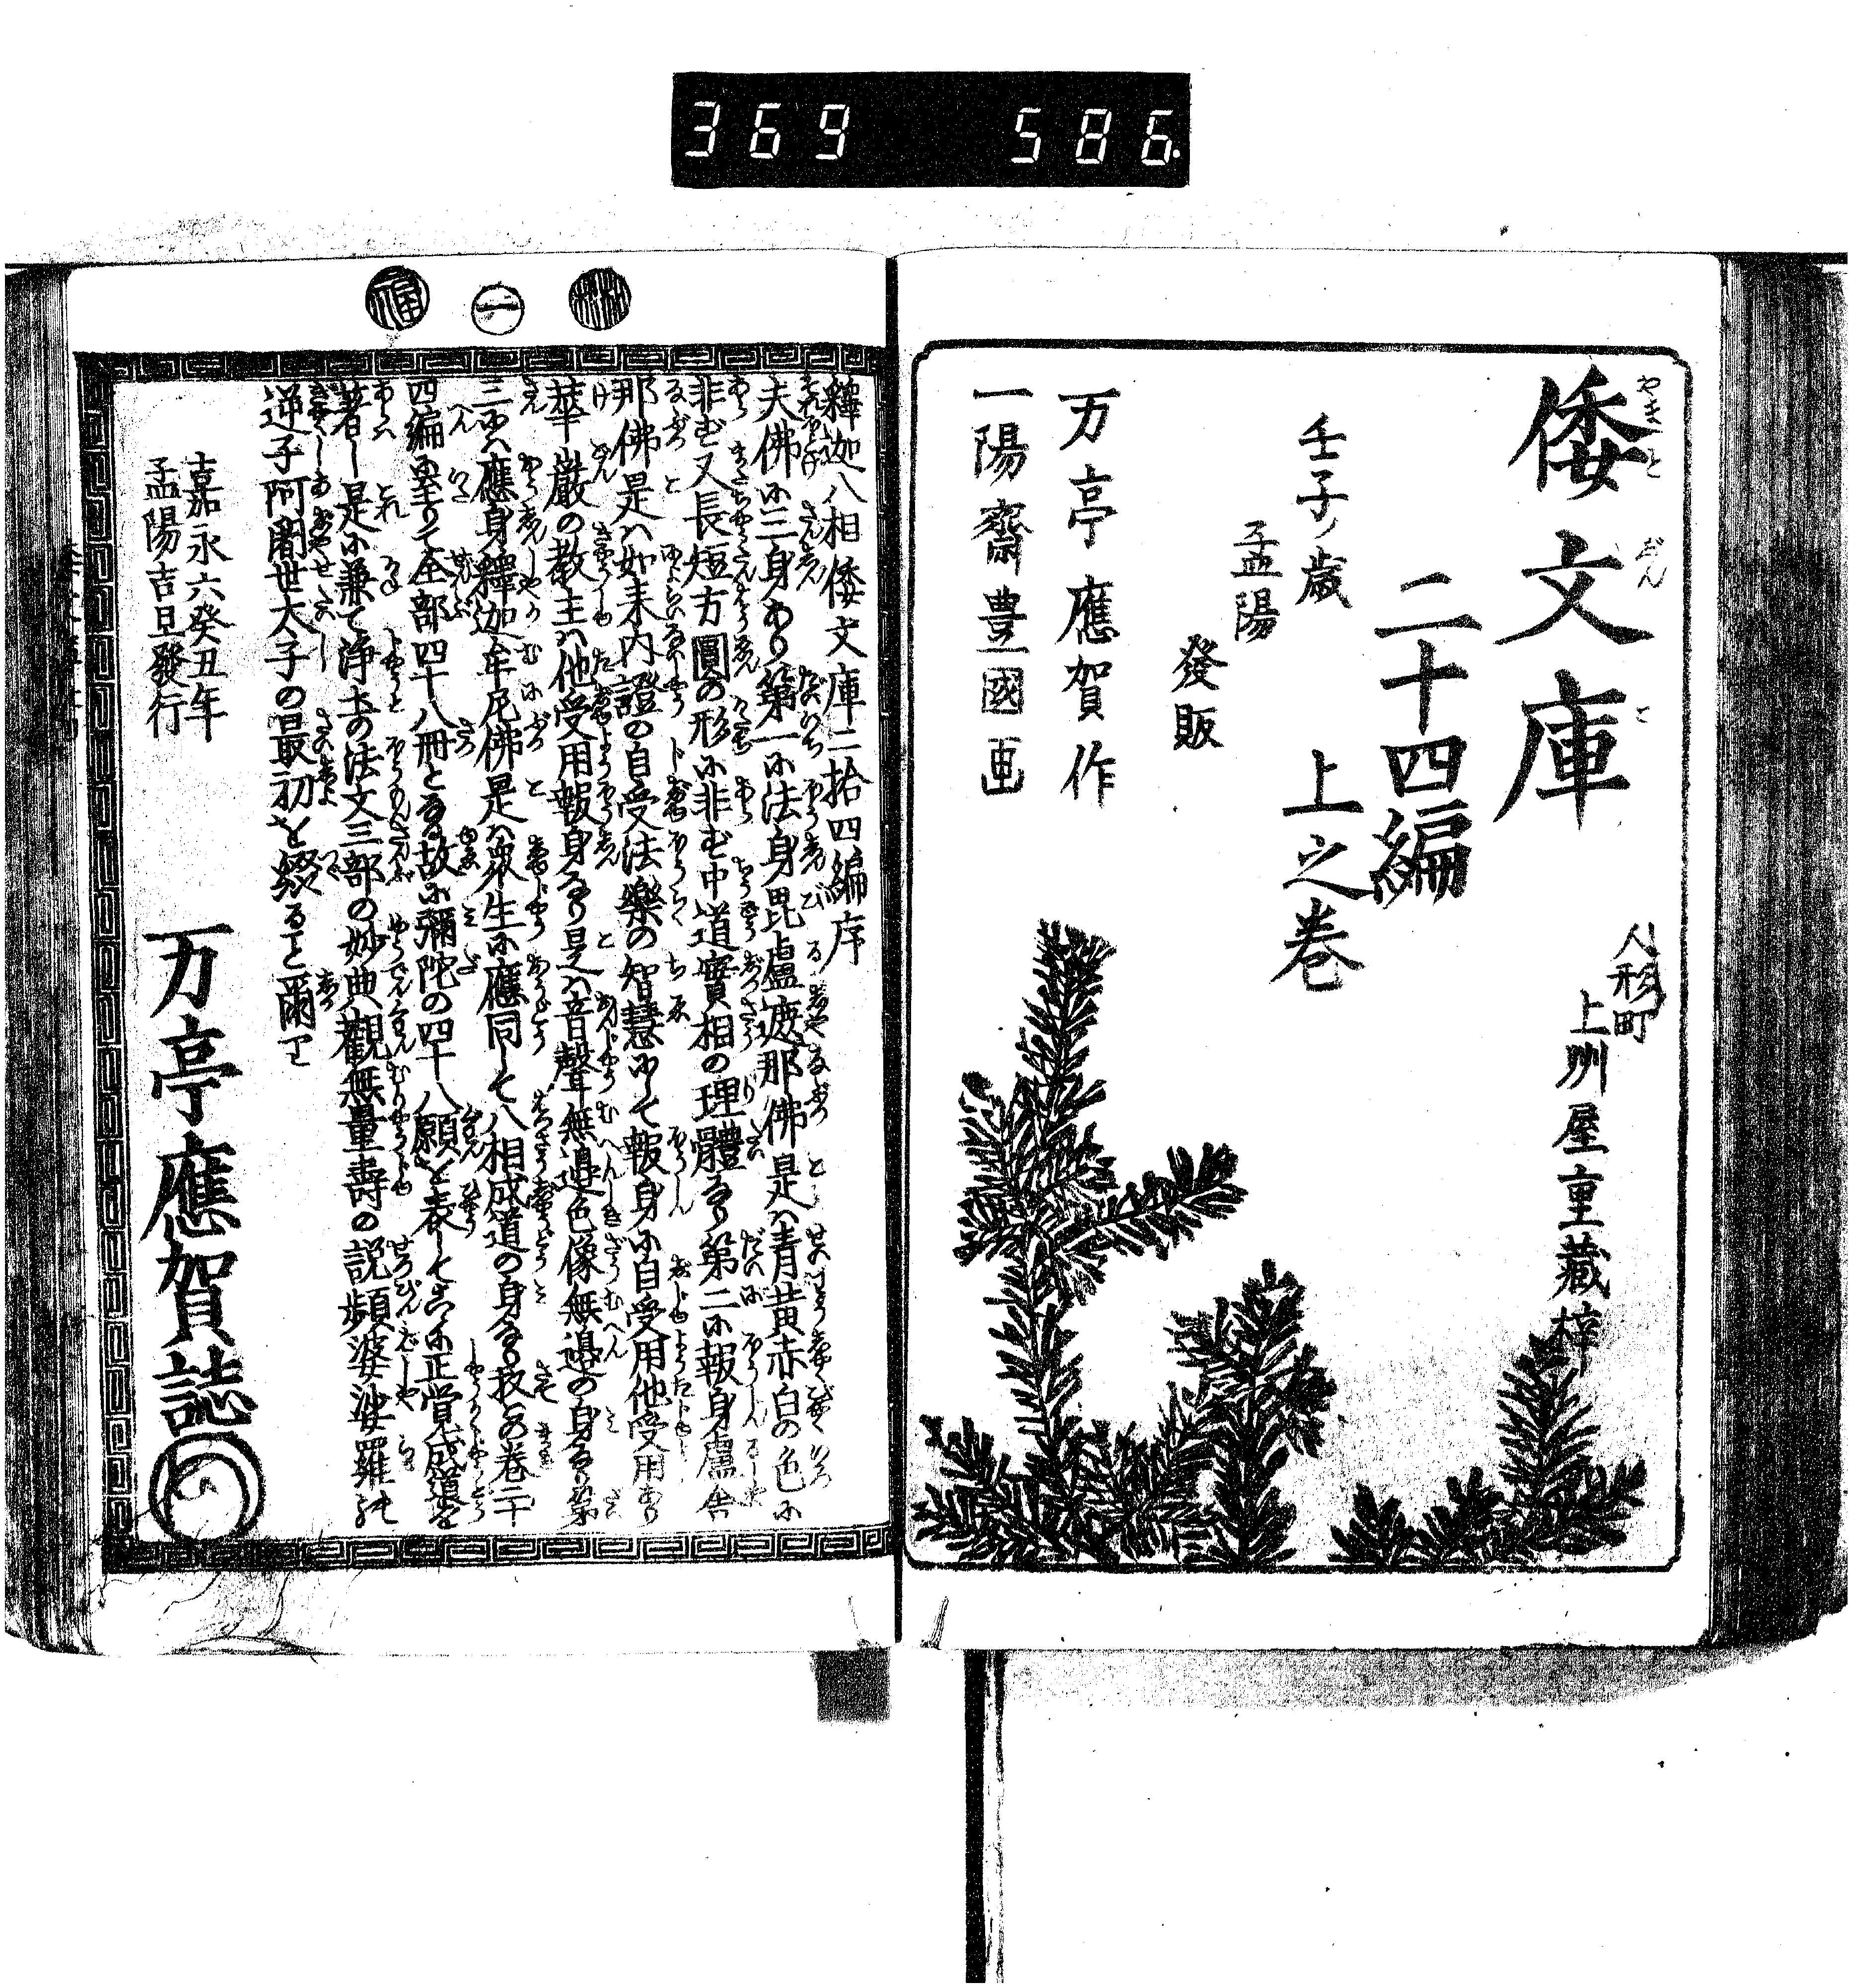 369 586
倭文庫
やまとぶんこ
二十四編
上之巻
壬子ノ歳
孟陽
發販
万亭應賀作
一陽齋豊國画
人形町
上州屋重藏梓
一
福
釋迦八相倭文庫二拾四編序
夫佛に三身あり第一に法身毘盧遮那佛是ハ青黄赤白の色に
非ず又長短方圓の形に非ず中道實相の理體なり第二に報身盧舎
那佛是ハ如来内證の自受法樂の智慧にして報身に自受用他受用あり
華嚴の教主ハ他受用報身なり是ハ音聲無邉色像無邉の身なり第
三にハ應身釋迦牟尼佛是ハ衆生に應同して八相成道の身なり扨この巻二十
四編に至りて全部四十八冊となる故に彌陀の四十八願を表して茲に正覚成道を
著し是に兼て浄土の法文三部の妙典觀無量壽の説頻婆娑羅が
逆子阿闍世太子の最初を綴ると爾云
嘉永六癸丑年
孟陽吉旦發行
万亭應賀誌